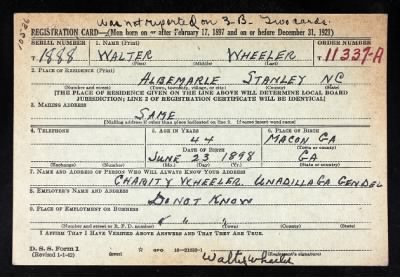 was not reported on 3-B. Two cards.
REGISTRATION CARD—(Men born on or after February 17, 1897 and on or before December 31, 1921)
SERIAL NUMBER
1. NAME (Print)
ORDER NUMBER
T 1888
WALTER WHEELER
11337-A
(First) (Middle) (Last)
2. PLACE OF RESIDENCE (Print)
ALBEMARLE STANLEY NC
(Number and street) (Town, township, village, or city) (County) (State)
[THE PLACE OF RESIDENCE GIVEN ON THE LINE ABOVE WILL DETERMINE LOCAL BOARD
JURISDICTION; LINE 2 OF REGISTRATION CERTIFICATE WILL BE IDENTICAL]
3. MAILING ADDRESS
SAME
[Mailing address if other than place indicated on line 2. If same insert word same]
4. TELEPHONE
5. AGE IN YEARS
6. PLACE OF BIRTH
44
MACON GA
DATE OF BIRTH
(Town or county)
JUNE 23 1898
GA
(Exchange) (Number) (Mo.) (Day) (Yr.) (State or country)
7. NAME AND ADDRESS OF PERSON WHO WILL ALWAYS KNOW YOUR ADDRESS
CHARITY WHEELER UNADILLA GA
8. EMPLOYER'S NAME AND ADDRESS
DO NOT KNOW
9. PLACE OF EMPLOYMENT OR BUSINESS
(Number and street or R. F. D. number) (Town) (County) (State)
I AFFIRM THAT I HAVE VERIFIED ABOVE ANSWERS AND THAT THEY ARE TRUE.
D. S. S. Form 1
(Revised 1-1-42)
GPO
Walter Wheeler
(Registrant's signature)